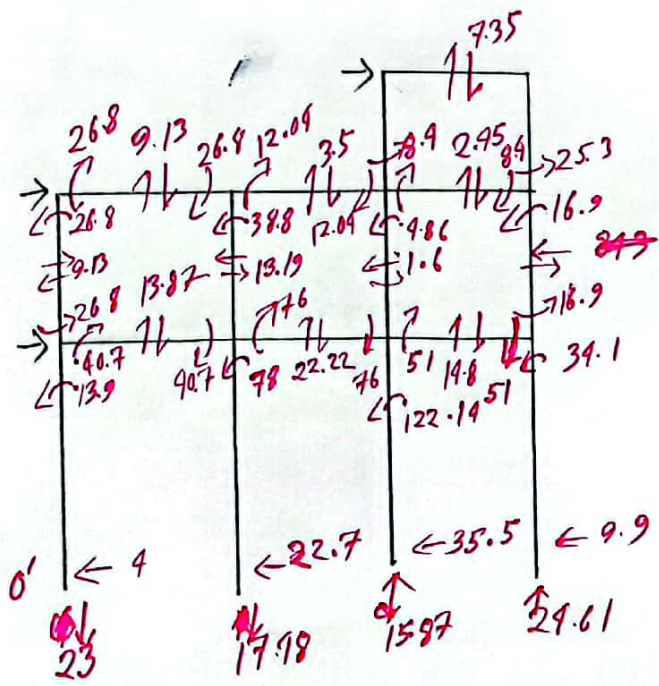 7.35
26.8 9.13 26.8 12.04 3.5 8.4 2.45 8.4 25.3
26.8 38.8 12.04 4.86 16.9
9.13 13.19 1.6
26.8 13.87 76 16.9
40.7 40.7 78 22.22 76 51 14.8 51 34.1
13.9 122.14
0' 4 22.7 35.5 9.9
23 17.98 15.87 24.61